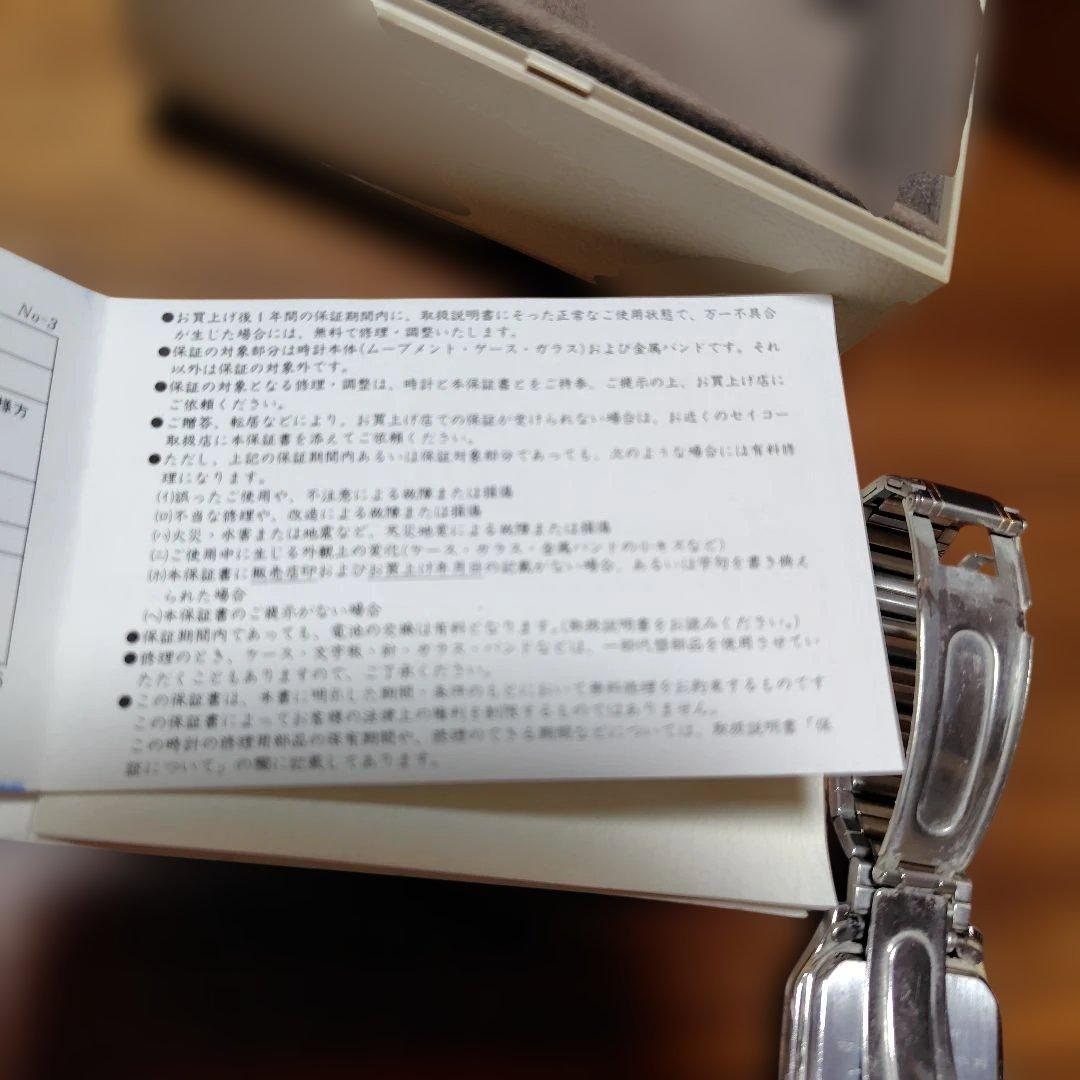 No-3
様方
●お買上げ後1年間の保証期間内に、取扱説明書にそった正常なご使用状態で、万一不具合
が生じた場合には、無料で修理・調整いたします。
●保証の対象部分は時計本体(ムーブメント・ケース・ガラス)および金属バンドです。それ
以外は保証の対象外です。
●保証の対象となる修理・調整は、時計と本保証書とをご持参、ご提示の上、お買上げ店に
ご依頼ください。
●ご贈答、転居などにより、お買上げ店での保証が受けられない場合は、お近くのセイコー
取扱店に本保証書を添えてご依頼ください。
●ただし、上記の保証期間内あるいは保証対象部分であっても、次のような場合には有料修
理になります。
(イ)誤ったご使用や、不注意による故障または損傷
(ロ)不当な修理や、改造による故障または損傷
(ハ)火災・水害または地震など、天災地変による故障または損傷
(ニ)ご使用中に生じる外観上の変化(ケース・ガラス・金属バンドの小キズなど)
(ホ)本保証書に販売店印およびお買上げ年月日の記載がない場合、あるいは字句を書き換え
られた場合
(ヘ)本保証書のご提示がない場合
●保証期間内であっても、電池の交換は有料となります。(取扱説明書をお読みください。)
●修理のとき、ケース・文字板・針・ガラス・バンドなどは、一部代替部品を使用させてい
ただくこともありますので、ご了承ください。
●この保証書は、本書に明示した期間・条件のもとにおいて無料修理をお約束するものです
この保証書によってお客様の法律上の権利を制限するものではありません。
この時計の修理用部品の保有期間や、修理のできる期間などについては、取扱説明書「保
証について」の欄に記載してあります。